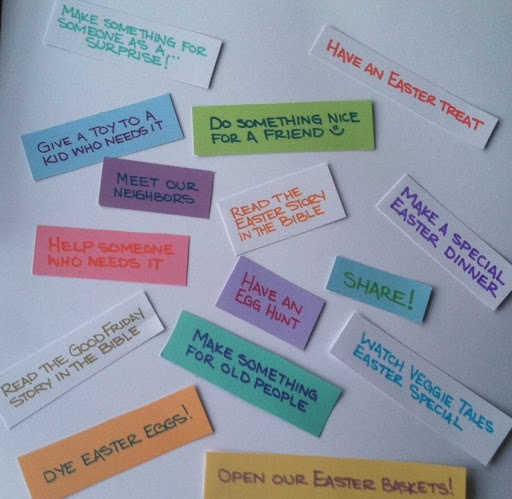 MAKE SOMETHING FOR
SOMEONE AS A...
SURPRISE!
HAVE AN EASTER TREAT
GIVE A TOY TO A
KID WHO NEEDS IT
DO SOMETHING NICE
FOR A FRIEND ☺
MEET OUR
NEIGHBORS
READ THE
EASTER STORY
IN THE BIBLE
MAKE A SPECIAL
EASTER DINNER
HELP SOMEONE
WHO NEEDS IT
HAVE AN
EGG HUNT
SHARE!
READ THE GOOD FRIDAY
STORY IN THE BIBLE
MAKE SOMETHING
FOR OLD PEOPLE
WATCH VEGGIE TALES
EASTER SPECIAL
DYE EASTER EGGS!
OPEN OUR EASTER BASKETS!